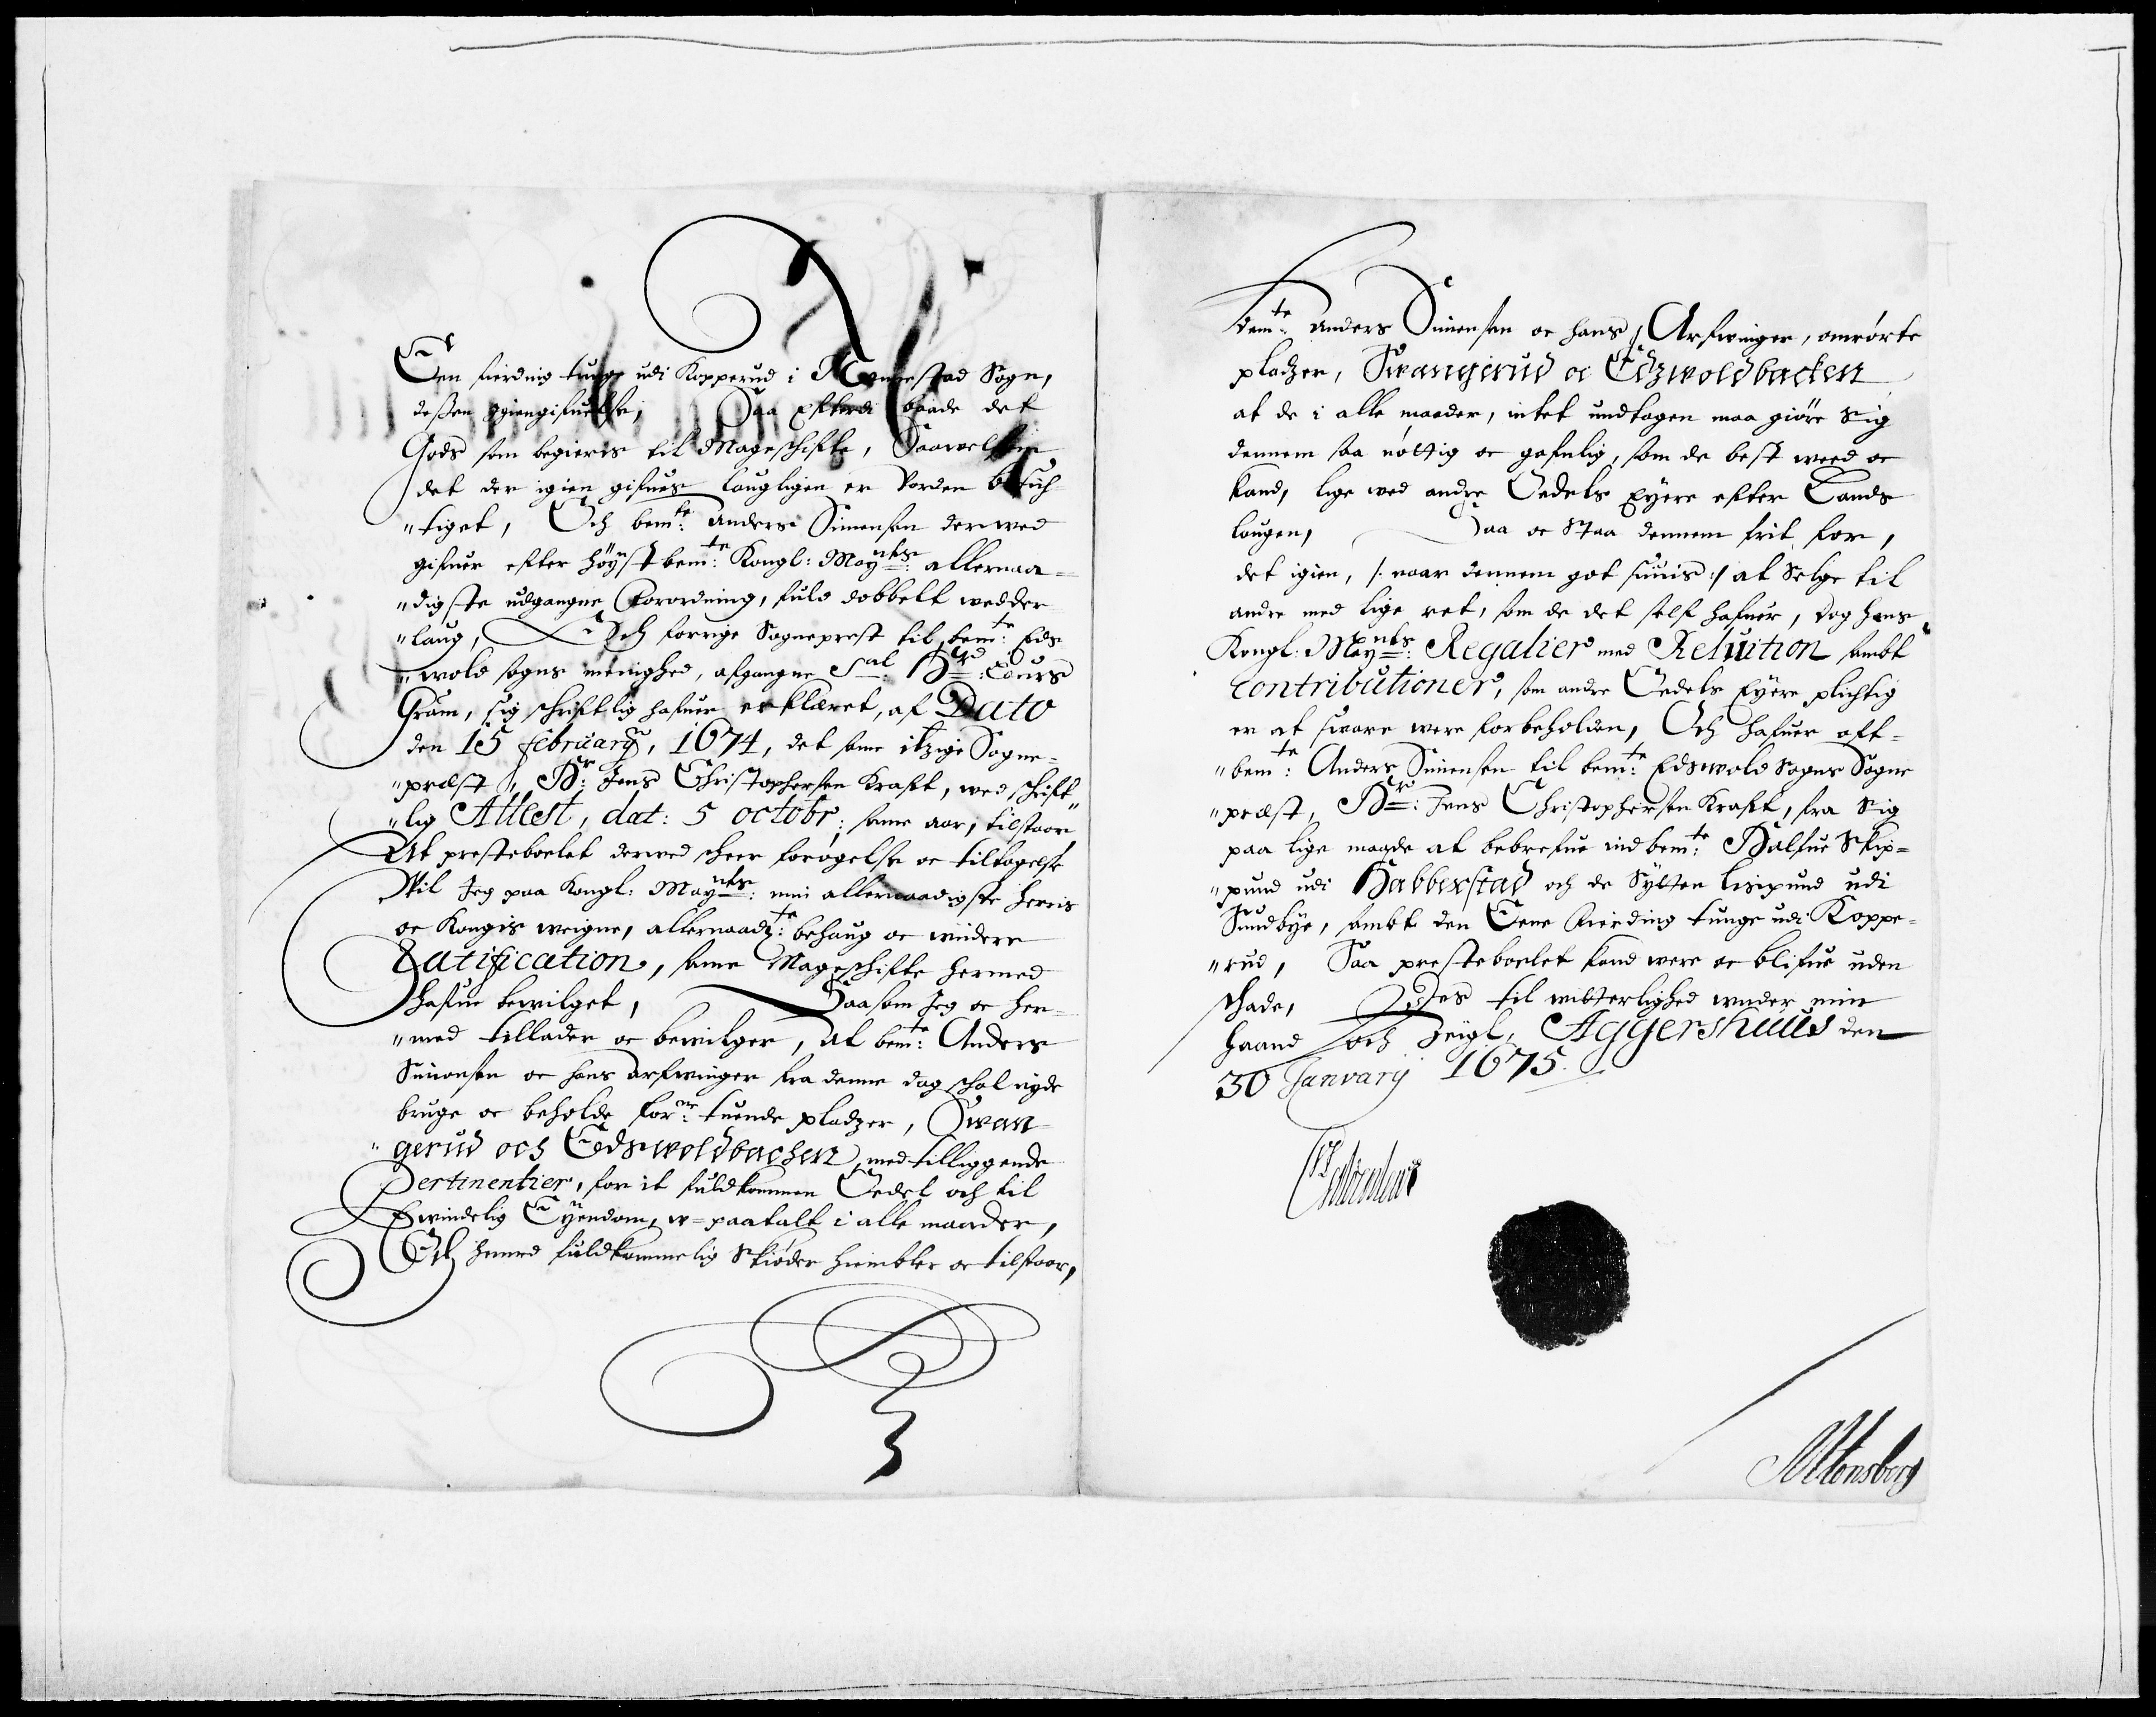 Een fierding tunge udi Kopperud i Nannestad Sogn,
deßen igiengifuelse, Saa Efterdi baade det
Gods som begieris til Mageschifte, Saavelsom
det der igien gifues lougligen er worden besich-
"tiget, Och bemte: Anders Simensen derwed
gifuer efter höyst bemte: Kongl: Mayts: allernaa-
"digste udgangne Forordning, fuld dobbelt wedder
"laug, Och forrige Sogneprest til bemte: Eds
"wold sogns menighed, afgangne Sal: Hr: Lours
Gram, sig schriftlig hafuer erklæret, af Dato
den 15 february, 1674, det same itzige Sogne-
"præst, Hr: Jens Christophersen Kraft, wed schrift
"lig Attest, dat: 5 octobr: same aar, tilstaar
At presteboelet derwed scheer forøgelse oc tiltagelse
Wil Jeg paa Kongl: Mayts: min allernaadigste herris
oc Kongis weigne, allernaadte: behaug oc widere
Ratification, same Mageschifte hermed
hafue bewilget, Saasom Jeg oc her-
"med tillader oc bewilger, At bemte: Anders
Simensen oc hans Arfwinger fra denne dag schal nyde
bruge oc beholde forne: tuende pladzer, Swan
"gerud och Edswoldbachen med tilliggende
Pertinentier, for it fuldkommen Oedel och til
Ewindelig Eyendom, w-paatalt i alle maader,
Och hermed fuldkommelig Skiøder hiembler oc tilstaar,
bemte: Anders Simensen oc hans Arfwinger, omrørte
pladzer, Swangerud oc Edzwoldbacken
at de i alle maader, intet undtagen maa giöre Sig
dennem saa nöttig oc gafnlig, som de best weed oc
kand, lige wed andre Oedels Eyere efter Lands
lougen, Saa oc Staa dennem frit for,
det igien, /: naar dennem got siunis :/ at Selge til
andre med lige ret, som de det self hafuer, dog hans
Kongl: Mayts: Regalier med Reluition sambt
Contributioner, som andre Oedels Eyere plichtig
er at suare were forbeholden, Och hafuer oft-
"bemte: Anders Simensen til bemte: Edswold Sogns Sogne
"præst, Hr: Jens Christophersen Kraft, fra Sig
paa lige maade at bebrefue indbemte: Halfue Skip-
"pund udi Habberstad och de Sytten lispund udi
Sundbye, sambt den Eene fierding tunge udi Koppe-
"rud, Saa presteboelet kand were oc blifue uden
schade, Des til witterlighed under min
haand och Seigl, Aggershuus den
30 January 1675.